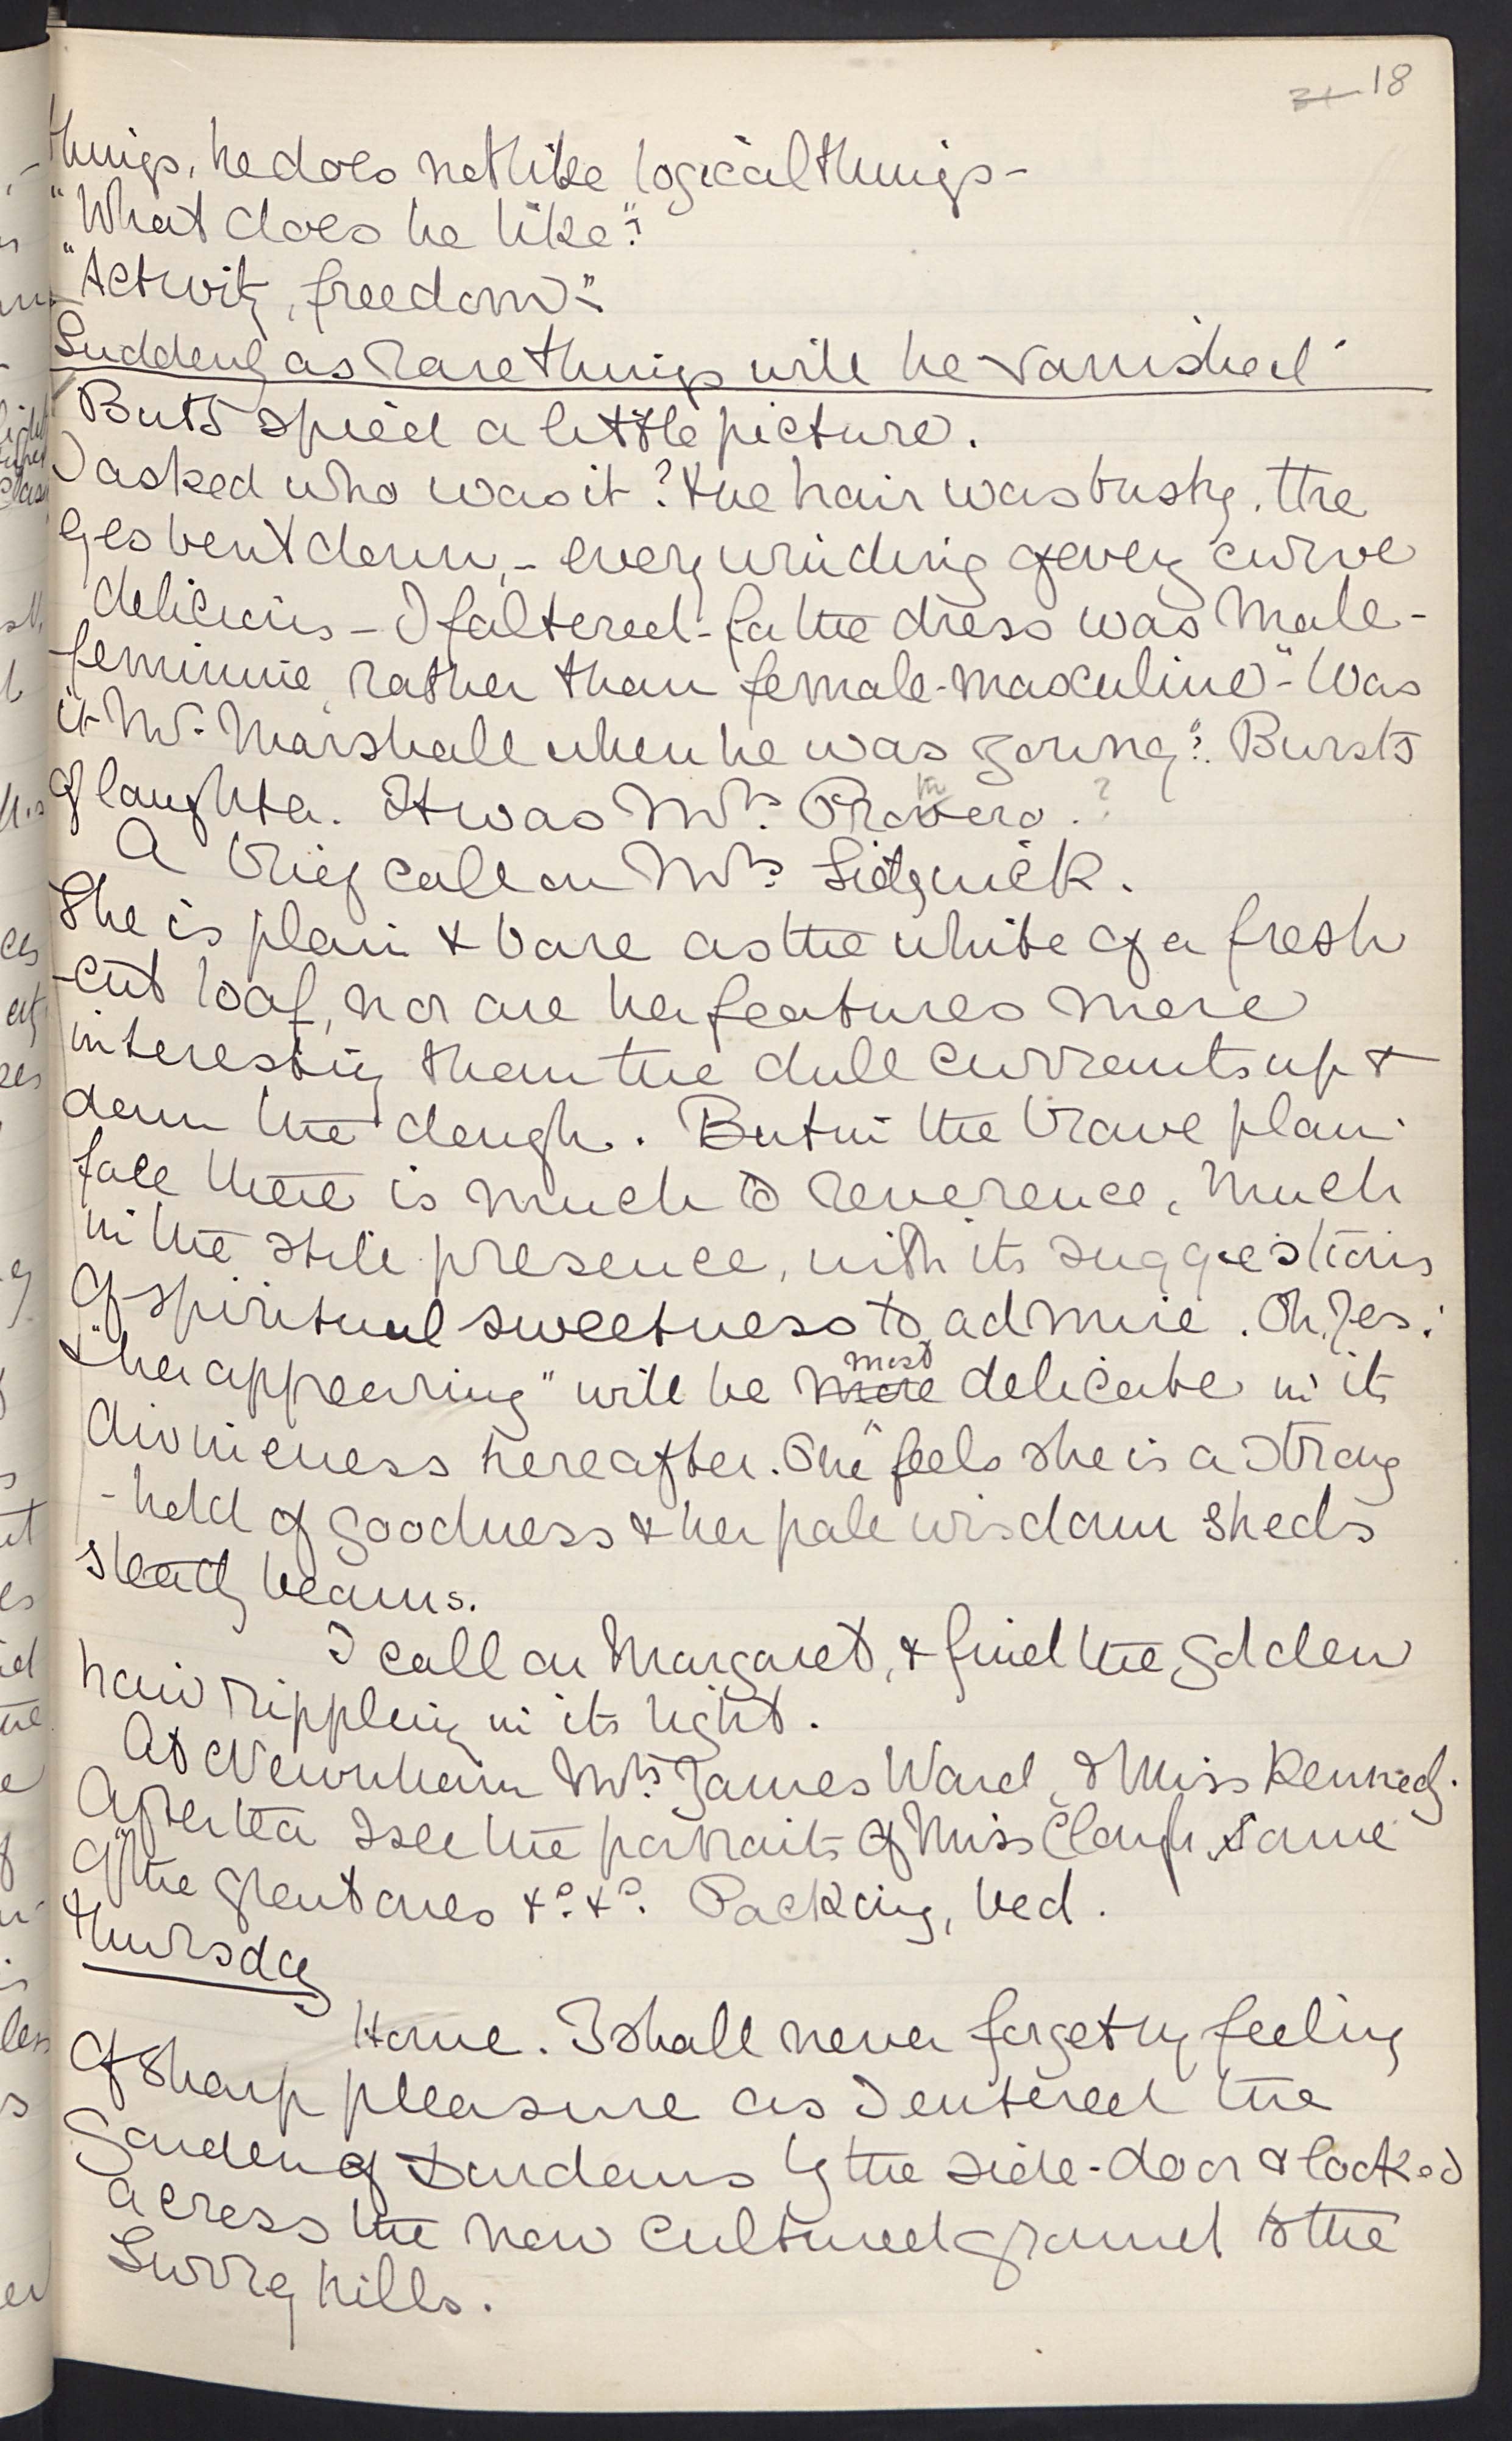 31 18
things, he does not like logical things –
"What does he like"?
"Activity, freedom".
Suddenly as rare things will he vanished
But I spied a little picture.
I asked who was it? the hair was bushy, the
eyes bent down, – every winding of every curve
delicious – I faltered – for the dress was "male-
feminine, rather than female-masculine" – Was
it Mr. Marshall when he was young"? Bursts
of laughter. It was Mrs.
A brief call on Mrs. Sidgwick.
She is plain & bare as the white of a fresh
-cut loaf, nor are her features more
interesting than the dull currants up &
down the dough. But in the brave plain
face there is much to reverence, much
in the still presence, with its suggestions
of spiritual sweetness to admire. Oh, yes!
& "her appearing" will be more most delicate in its
divineness hereafter. One feels she is a strong
-hold of goodness & her pale wisdom sheds
steady beams.
I call on Margaret, & find the golden
hair rippling in its light.
At Newnham Mrs. James Ward, & Miss Kennedy.
After tea I see the portraits of Miss Clough, & some
of "the great ones &c. &c. Packing, bed.
Thursday
Home. I shall never forget my feeling
of sharp pleasure as I entered the
garden of Durdans by the side-door & looked
across the new cultured ground to the
Surrey hills.